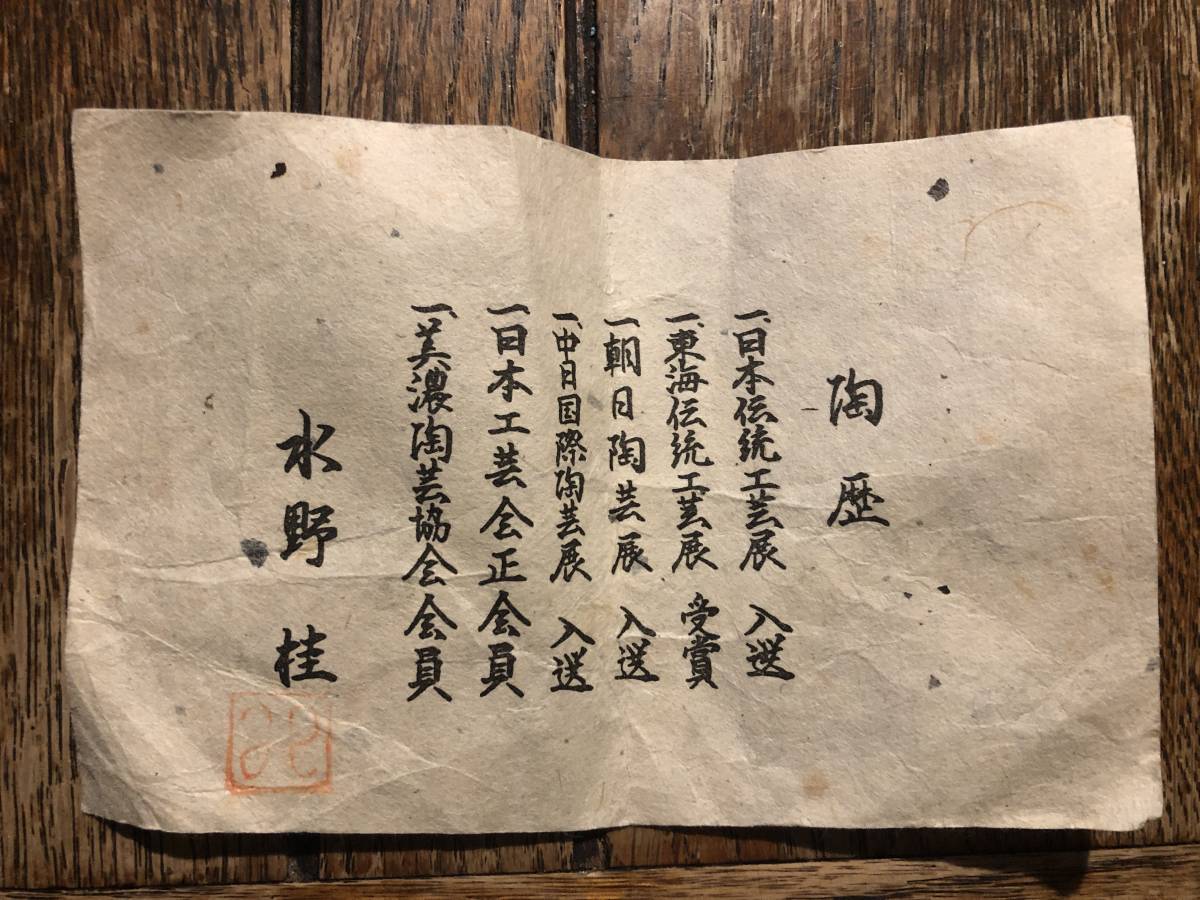 陶歴
一、日本伝統工芸展 入選
一、東海伝統工芸展 受賞
一、朝日陶芸展 入選
一、中日国際陶芸展 入選
一、日本工芸会正会員
一、美濃陶芸協会会員
水野 桂